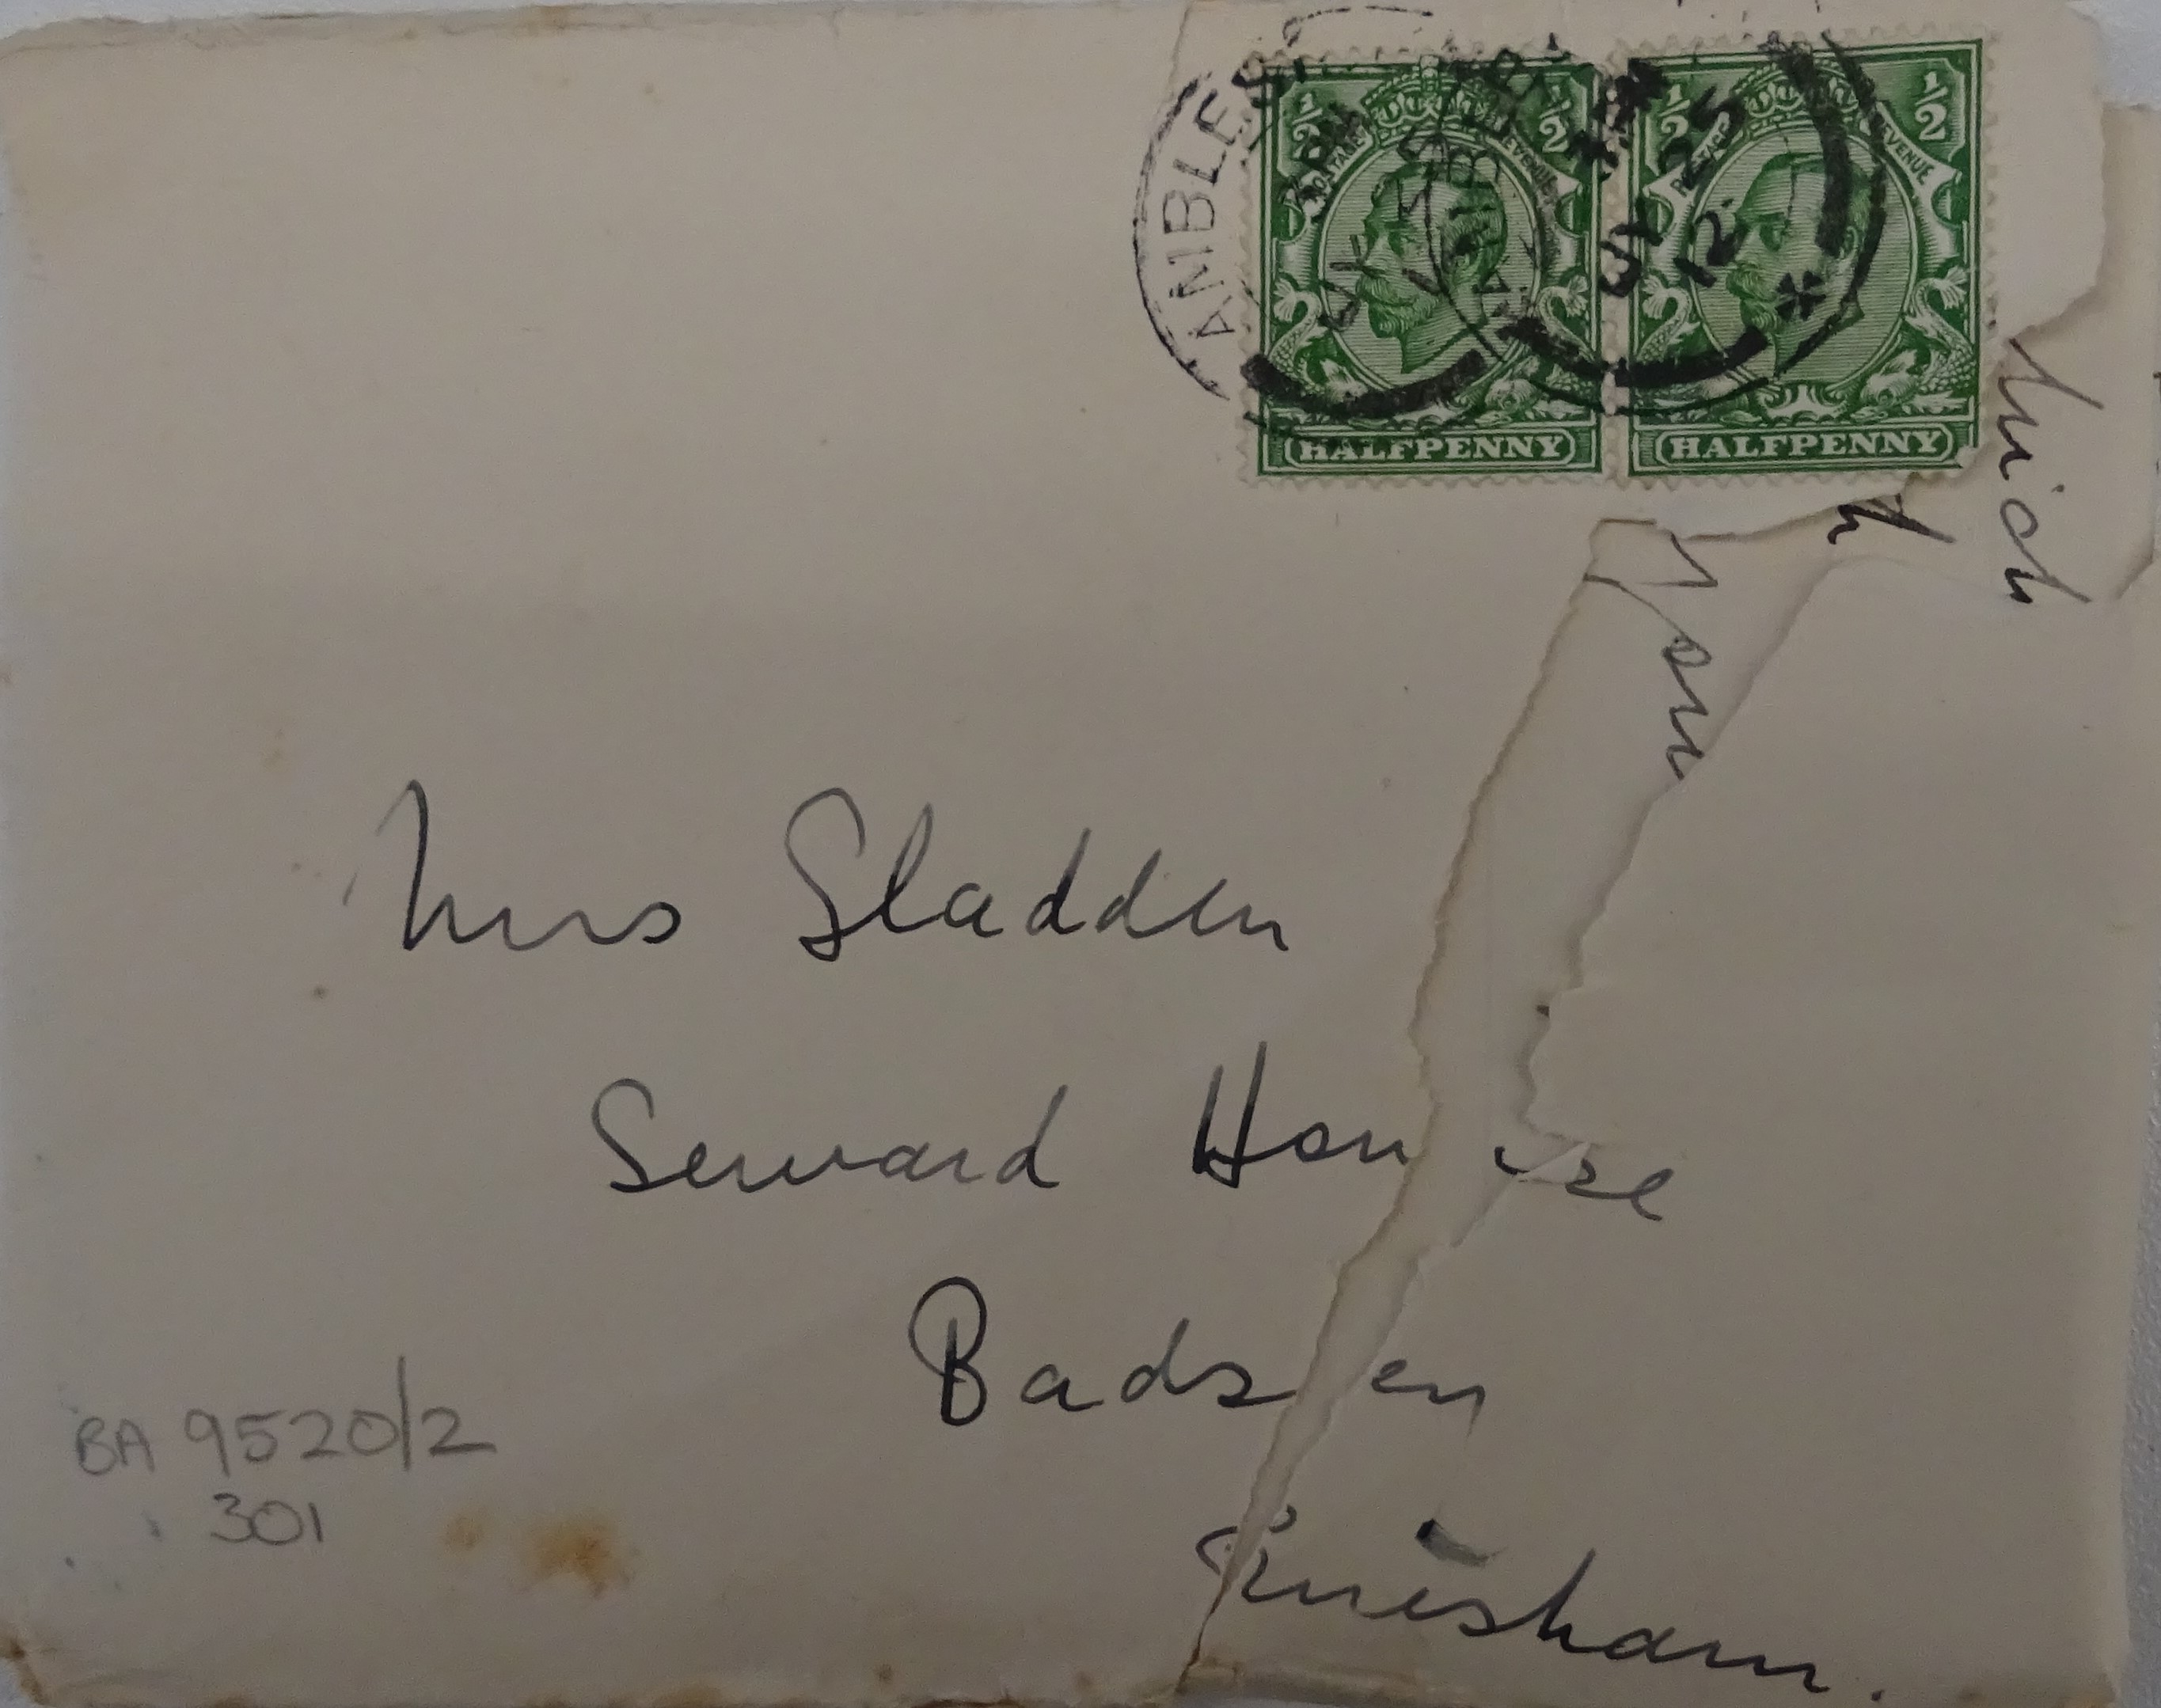 AMBLES
½ ½ ½ ½
POSTAGE REVENUE POSTAGE REVENUE
JY 25
12
HALFPENNY HALFPENNY
Mrs Sladden
Seward House
Badsey
Evesham.
BA 9520/2
301